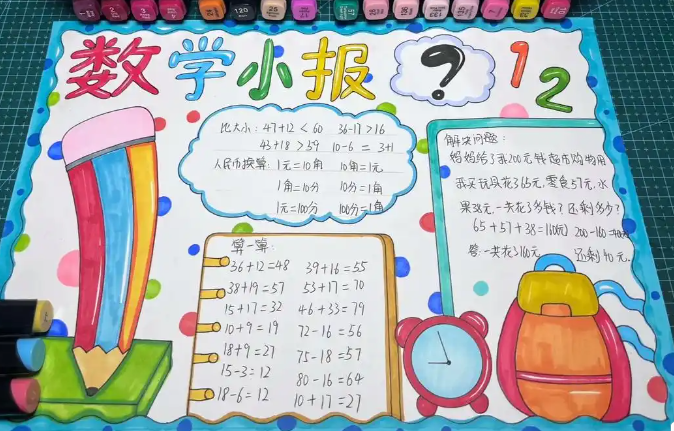 数学小报
?
12
比大小：47+12<60 36-17>16
43+18>59 10-6=3+1
人民币换算：1元=10角 10角=1元
1角=10分 10分=1角
1元=100分 100分=1角
算一算：
36+12=48 39+16=55
38+19=57 53+17=70
15+17=32 46+33=79
10+9=19 72-16=56
18+9=27 75-18=57
15-3=12 80-16=64
18-6=12 10+17=27
解决问题：
妈妈给了我200元钱超市购物用
我买玩具花了65元，零食57元，水
果38元，一共花了多钱？还剩多少？
65+57+38=160(元) 200-160=
答：一共花了160元 还剩40元。
120